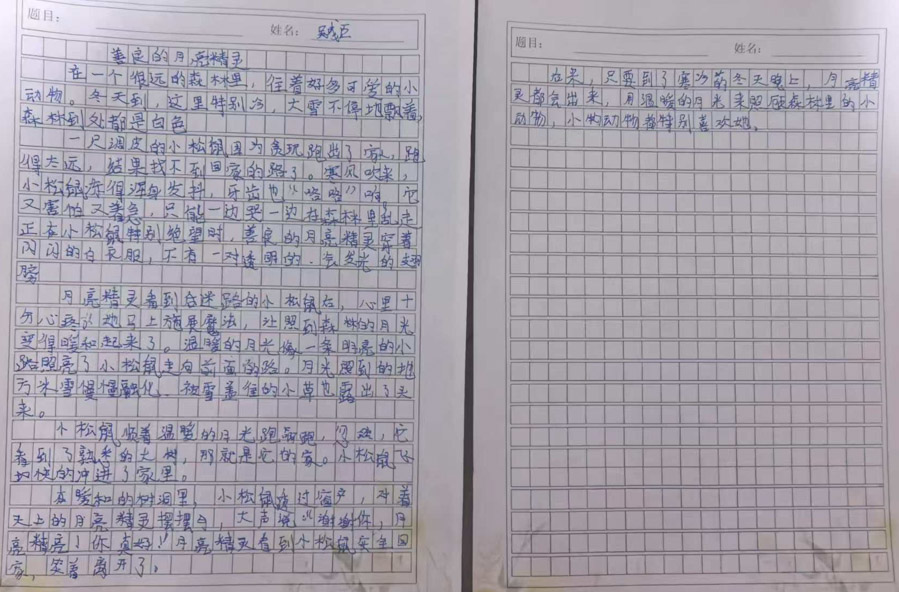 题目：
姓名：
善良的月亮精灵
在一个很远的森林里，住着好多可爱的小
动物。冬天到，这里特别冷，大雪不停地飘着，
森林到处都是白色
一只调皮的小松鼠因为贪玩跑出了家，跑
得太远，结果找不到回家的路了。寒风吹来，
小松鼠冻得浑身发抖，牙齿也“咯咯”响。它
又害怕又着急，只能一边哭一边在森林里乱走
正在小松鼠特别绝望时，善良的月亮精灵穿着
闪闪的白衣服，还有一对透明的、会发光的翅
膀
月亮精灵看到在迷路的小松鼠在，心里十
分心疼，她马上施展魔法，让照到森林的月光
变得暖和起来了。温暖的月光像一条明亮的小
路照亮了小松鼠走向前面的路。月光照到的地
方冰雪慢慢融化，被雪盖住的小草也露出了头
来。
小松鼠顺着温暖的月光跑啊跑，忽然，它
看到了熟悉的大树，那就是它的家。小松鼠飞
快的冲进了家里。
在暖和的树洞里，小松鼠透过窗户，对着
天上的月亮精灵摆摆手，大声说“谢谢你，月
亮精亮！你真好！”月亮精灵看到小松鼠安全回
家，笑着离开了。
题目：
姓名：
后来，只要到了寒冷的冬天晚上，月亮精
灵都会出来，用温暖的月光来照顾森林里的小
动物，小动物都特别喜欢她。